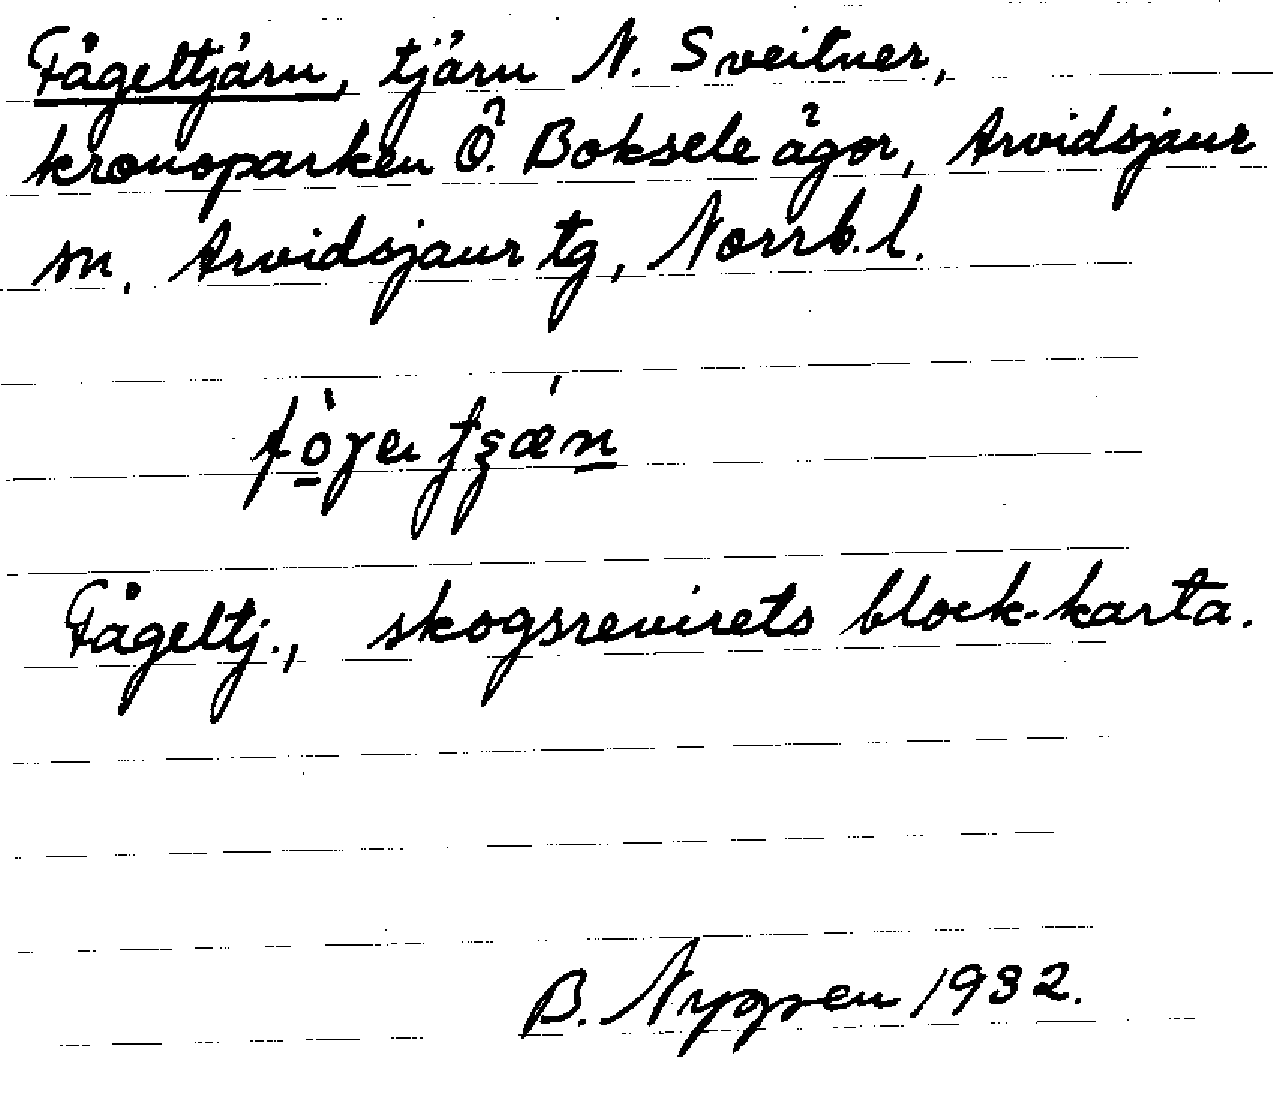 Fågeltjärn, tjärn N. Sveitner,
kronoparken Ö. Boksele ägor, Arvidsjaur
sn. Arvidsjaur tg, Norrb. l.
Fågeltj., skogsrevirets block-karta.
B. Nygren 1932.